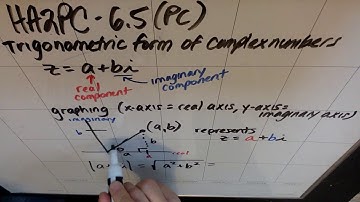 HA2PC - 6.5 (PC)
Trigonometric form of complex numbers
z = a + bi
real component
imaginary component
graphing (x-axis = real axis, y-axis = imaginary axis)
imaginary
b
(a,b)
represents
z = a + bi
b
a
real
|a i| = √a²+b² =